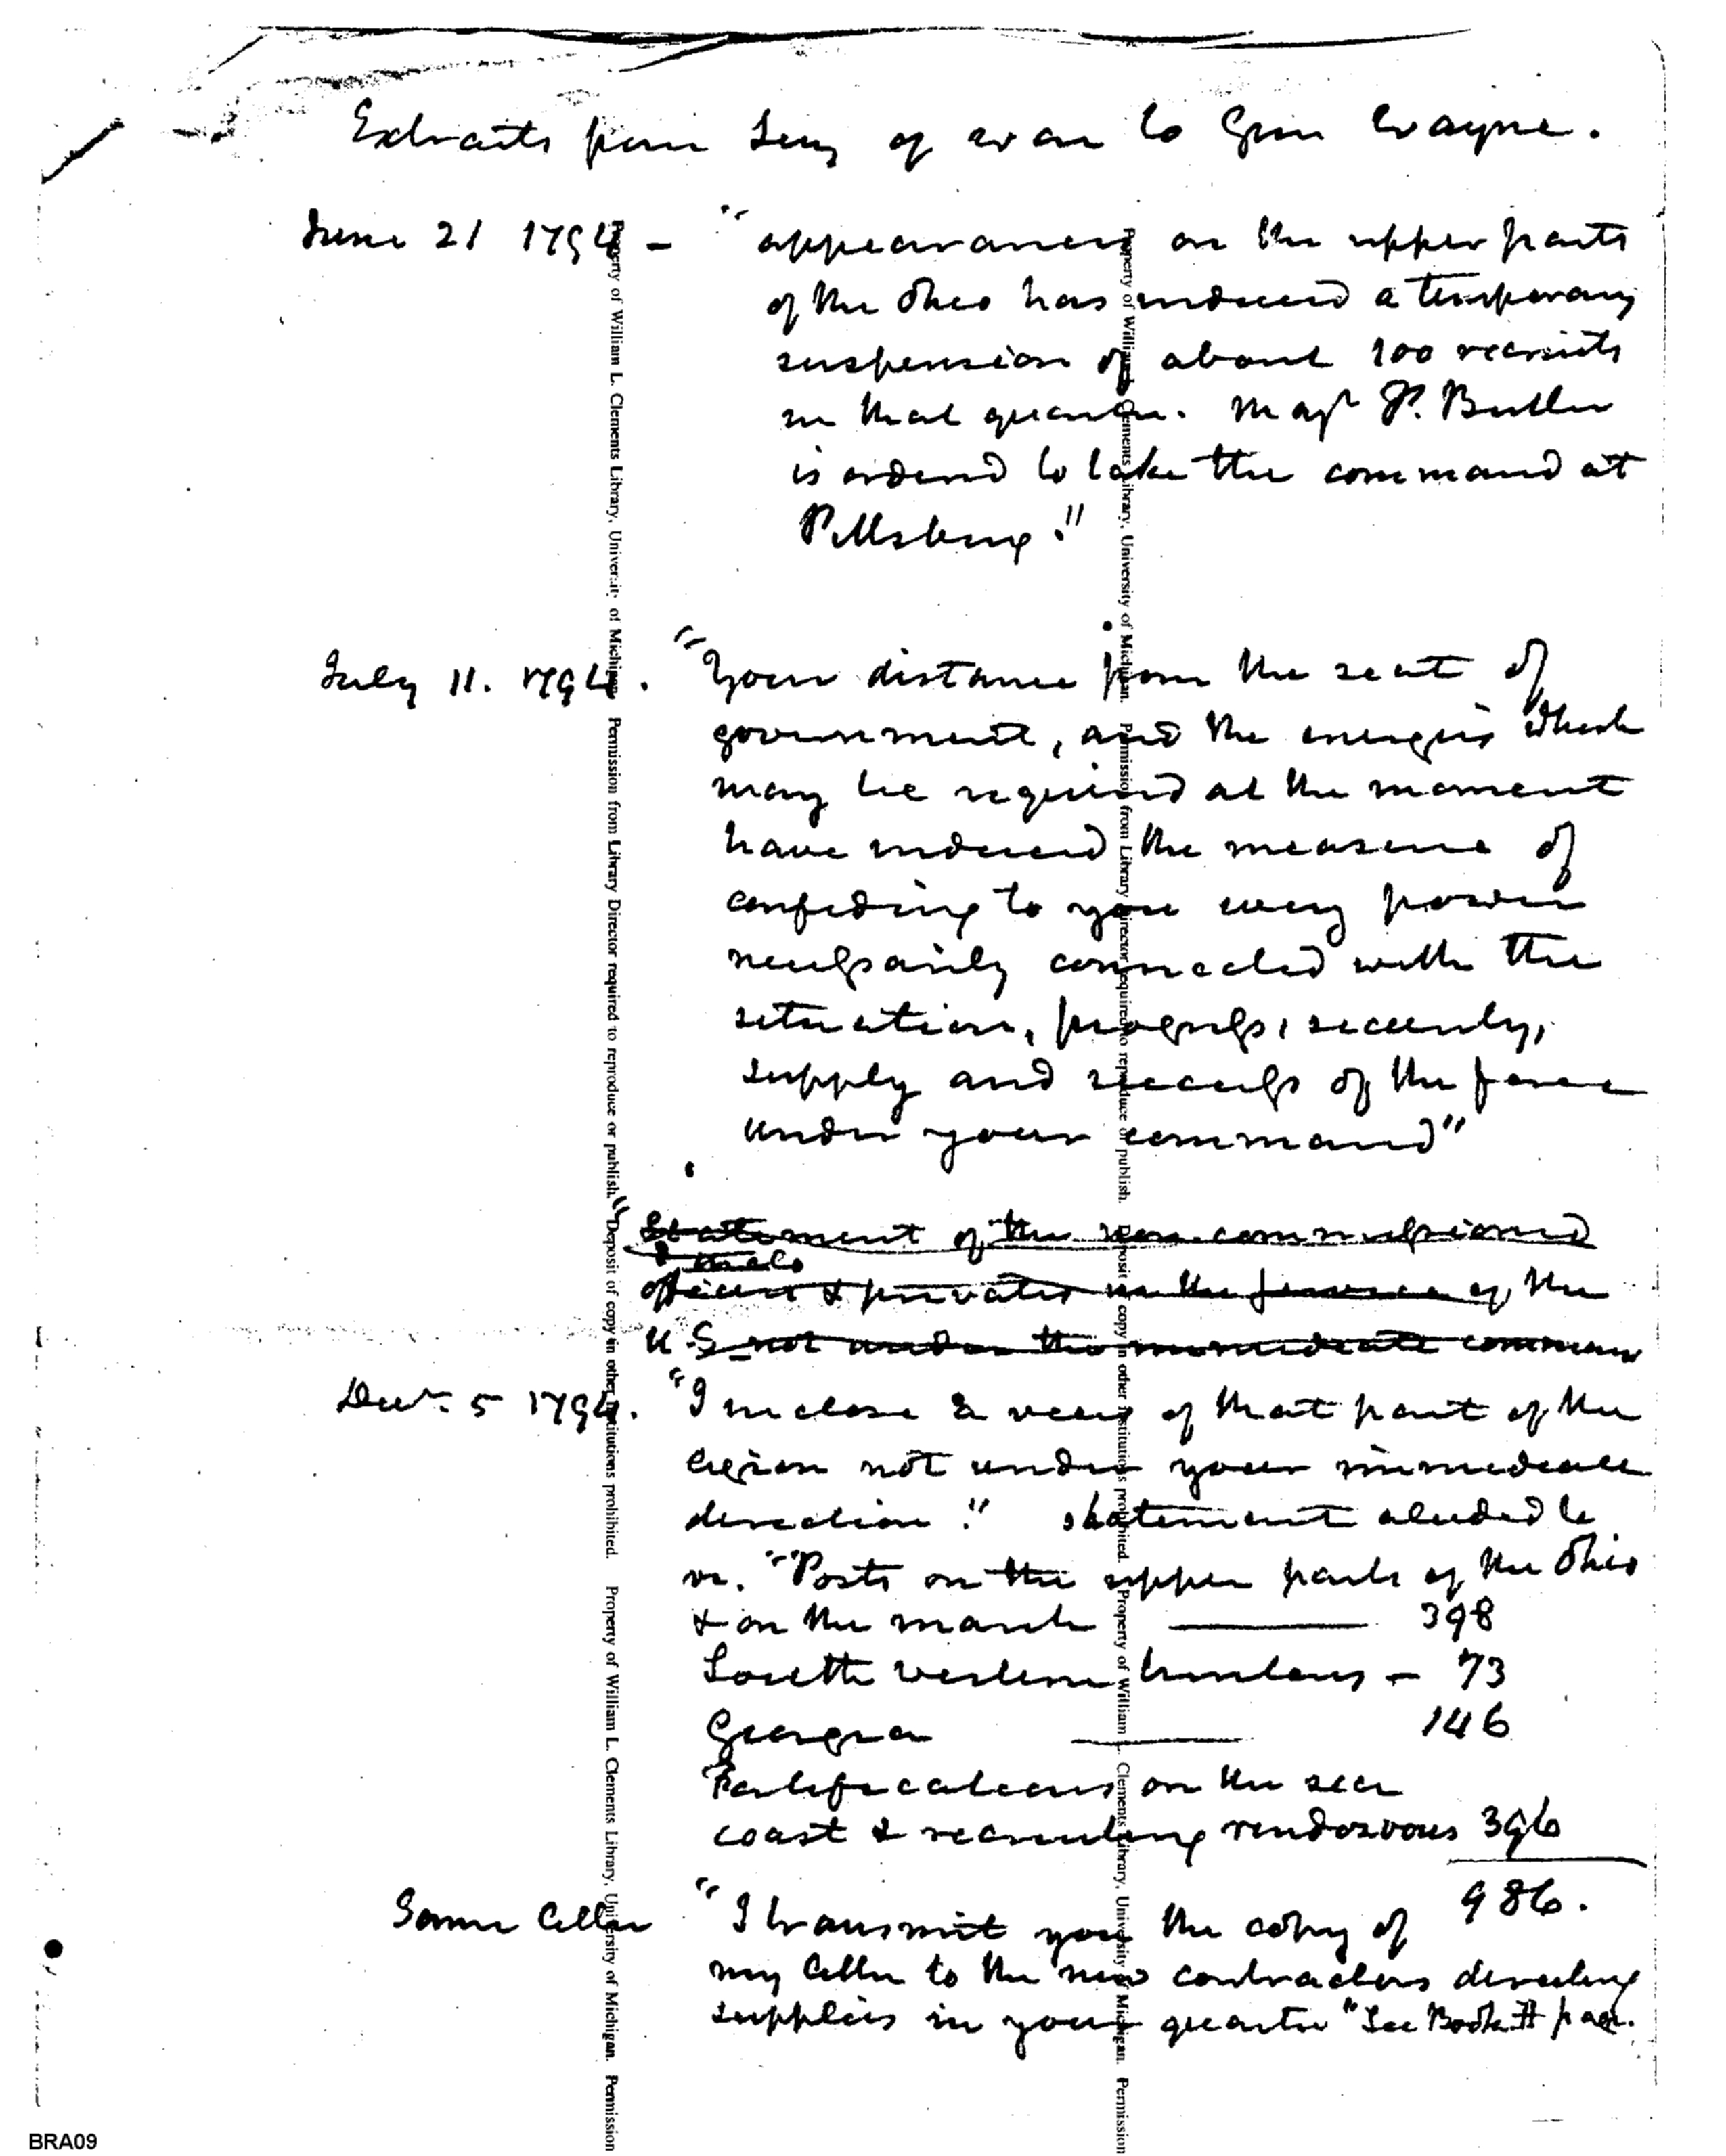 Extracts from Secy of War to Genl Wayne.
June 21 1794 - "appearances on the upper parts
of the Ohio has induced a temporary
suspension of about 100 recruits
in that quarter. Majr P. Butler
is ordered to take the command at
Pittsburg."
July 11. 1794. "Your distance from the seat of
government, and the energies which
may be required at the moment
have induced the measure of
confiding to you every power
necessarily connected with the
situation, progress, security,
supply and success of the force
under your command"
"Statement of the non commissioned
officers & privates in the service of the
U.S. not under the immediate comman
Decr. 5 1794. "I inclose a view of that part of the
legion not under your immediate
direction." Statement alluded to
vz. "Posts on the upper parts of the Ohio
& on the march 398
South western territory - 73
Georgia 146
Fortifications on the sea
coast & recruiting rendozvous 396
986.
Same letter "I transmit you the copy of
my letter to the new contractors directing
supplies in your quarter" See Book # page.
Property of William L. Clements Library, University of Michigan. Permission from Library Director required to reproduce or publish. Deposit of copy in other institutions prohibited. Property of William L. Clements Library, University of Michigan. Permission
Property of William L. Clements Library, University of Michigan. Permission from Library Director required to reproduce or publish. Deposit of copy in other institutions prohibited. Property of William L. Clements Library, University of Michigan. Permission
BRA09